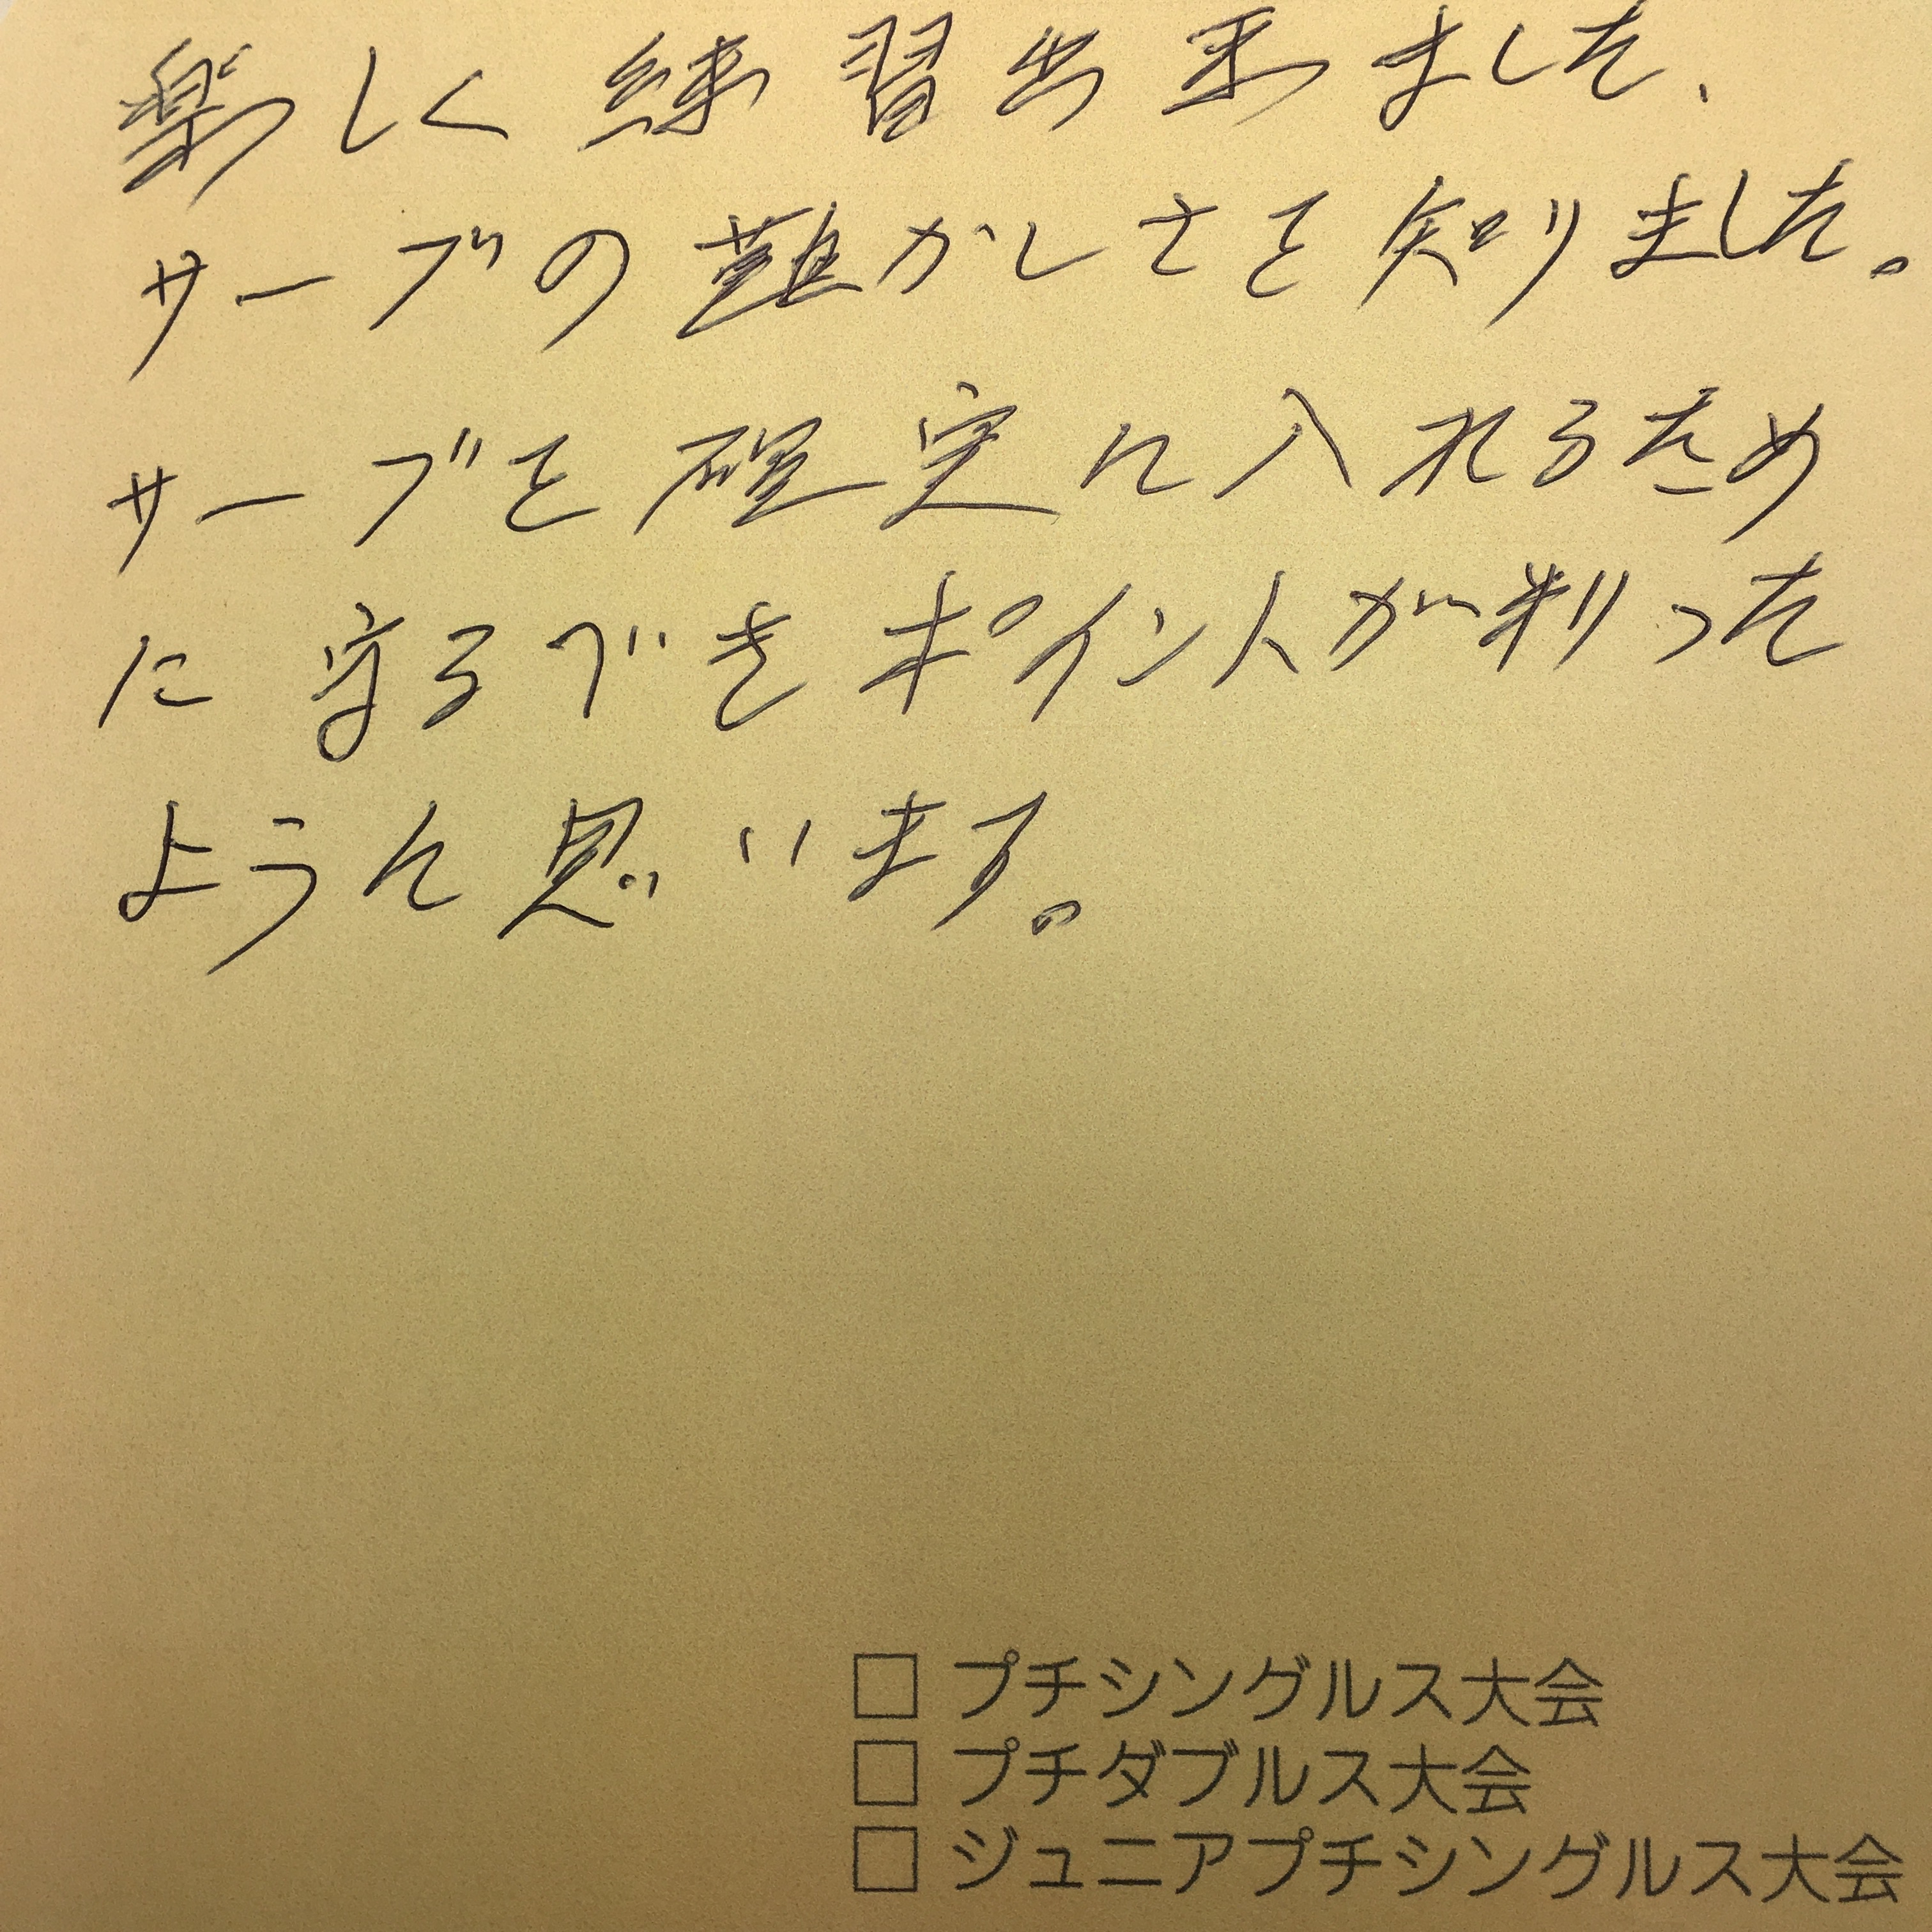 楽しく練習出来ました、
サーブの難かしさを知りました。
サーブを確実に入れるため
に守るべきポイントが判った
ように思います。
□ プチシングルス大会
□ プチダブルス大会
□ ジュニアプチシングルス大会